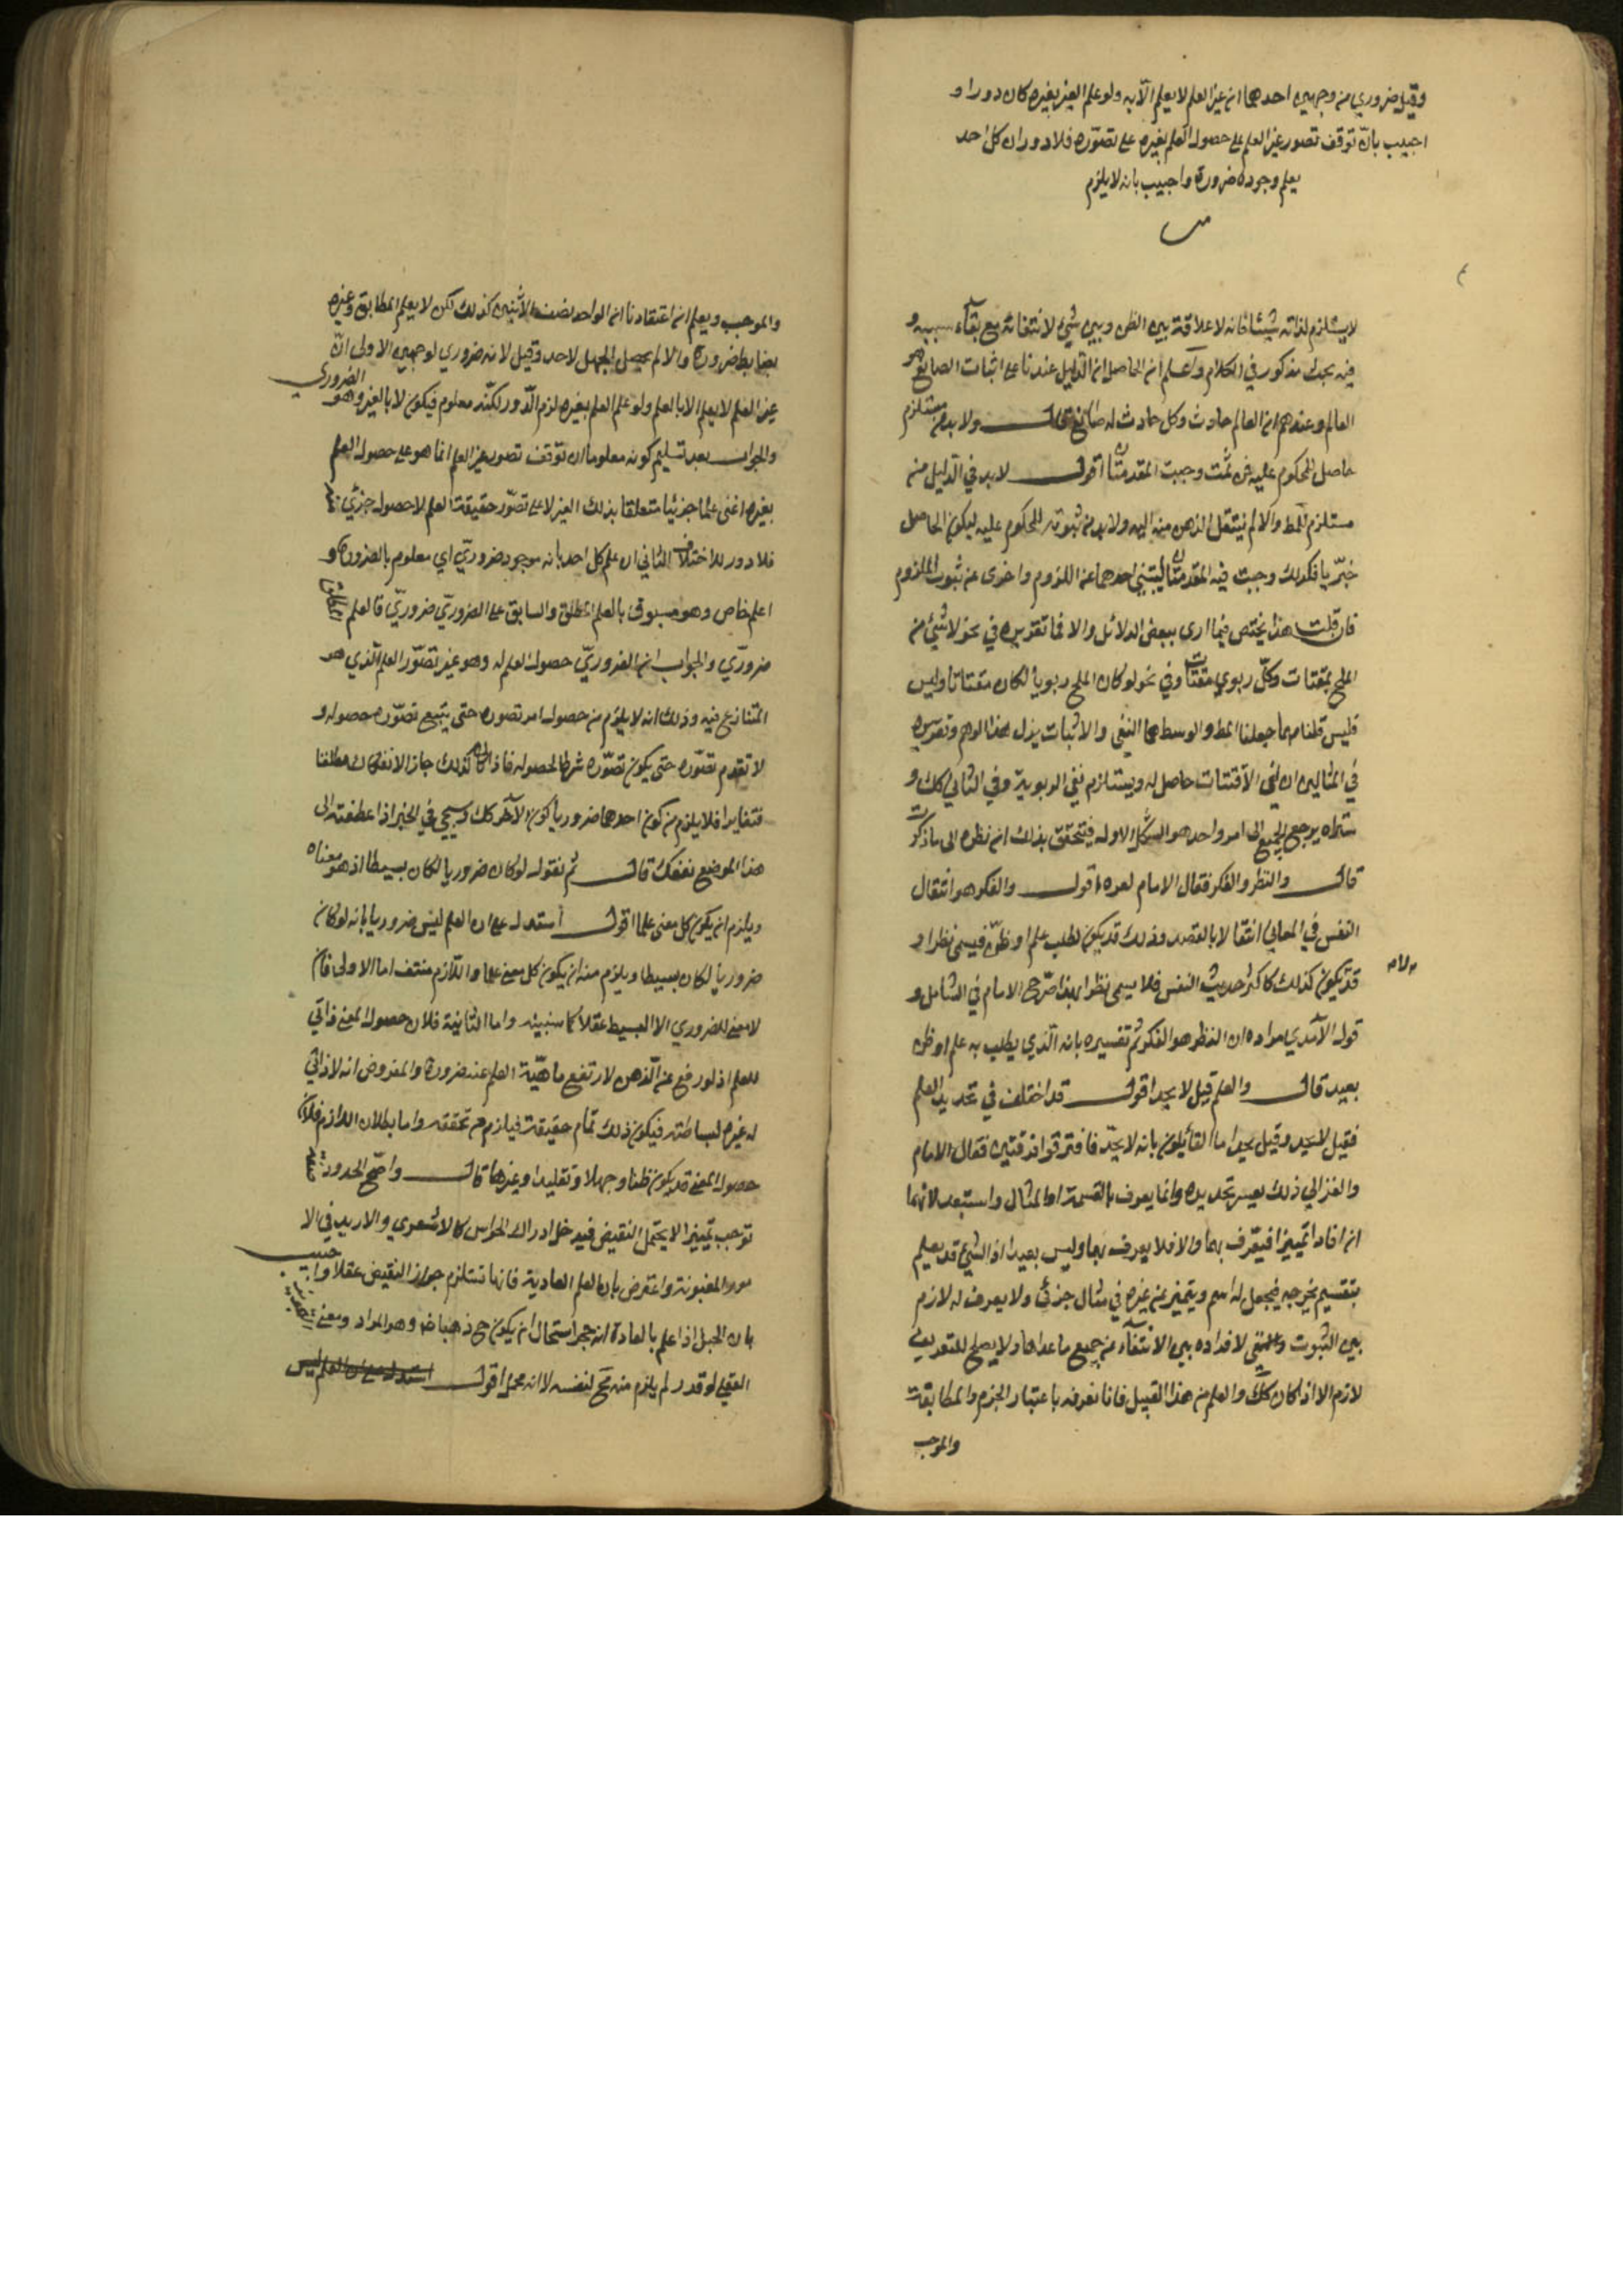 وقيل ضروري من وجهين احدهما ان غير العلم لا يعلم الا به ولو علم الغير بغيره كان دورا و
اجيب بان توقف تصور غير العلم على حصول العلم بغيره على تصوره فلا دور ان كل احد
يعلم وجوده ضرورة واجيب بانه لا يلزم
لا يستلزم لذاته شيئا فانه لا علاقة بين الظن وبين شئ لانتفائه مع بقاء سببه و
فيه بحث مذكور في الكلام واعلم ان الحاصل ان الدليل عندنا على اثبات الصانع هو
العالم وعندهم ان العالم حادث وكل حادث له صانع قال ولا بد من مستلزم
حاصل للمحكوم عليه فمن ثمت وجبت المقدمتان اقول لا بد في الدليل من
مستلزم المط والا لم ينتقل الذهن منه اليه ولا بد من ثبوته للمحكوم عليه ليكون الحاصل
خبريا فلذلك وجبت فيه المقدمتان لينبئ احدهما عن اللزوم واخرى عن ثبوت الملزوم
فان قلت هذا يختص فيما ارى ببعض الدلائل والا فما تقديره في نحو لا شئ من
الملح بمقتات وكل ربوي مقتات وفي نحو لو كان الملح ربويا لكان مقتاتا وليس
فليس قلنا مهما جعلنا المط والوسط هما النفي والاثبات يزل هذا الوهم وتقريره
في المثالين ان نفي الاقتيات حاصل له ويستلزم نفي الربوية وفي الثاني كك و
ستراه يرجع الجميع الى امر واحد هو الشكل الاول فيتحقق بذلك ان نظره الى ما ذكرت
قال والنظر والفكر فقال الامام اقول والفكر هو انتقال
النفس في المعاني انتقالا بالقصد وذلك قد يكون لطلب علم او ظن فيسمى نظرا و
قد يكون كذلك كاكثر حديث النفس فلا يسمى نظرا بهذا صرح الامام في الشامل و
قول الآمدي مراده ان النظر هو الفكر ثم تفسيره بانه الذي يطلب به علم او ظن
بعيد قال والعلم قيل لا يحد اقول قد اختلف في تحديد العلم
فقيل لا يحد وقيل يحد اما القائلون بانه لا يحد فافترقوا فرقتين فقال الامام
والغزالي ذلك يعسر تحديده وانما يعرف بالقسمة او المثال واستبعد لانهما
ان افادا تمييزا فيعرف بهما والا فلا يعرف بهما وليس بعيدا اذ الشئ قد يعلم
بتقسيم يخرجه فيجعل له اسم ويتميز عن غيره في مثال جزئي ولا يعرف له لازم
بين الثبوت لافراده بين الانتفاء عن جميع ما عداها ولا يصلح للتعريف
لازم الا اذا كان كك والعلم من هذا القبيل فانا نعرفه باعتبار الجزم والمطابقة
والموجب
والموجب ويعلم ان اعتقادنا ان الواحد نصف الاثنين كذلك لكن لا يعلم المطابق وغيره
بضابط ضرورة والا لم يحصل الجهل لاحد وقيل لانه ضروري لوجهين الاول ان
غير العلم لا يعلم الا بالعلم ولو علم العلم بغيره لزم الدور لكنه معلوم فيكون لا بالغير وهو الضروري
والجواب بعد تسليم كونه معلوما ان توقف تصور غير العلم انما هو على حصول العلم
بغيره اعني علما جزئيا متعلقا بذلك الغير لا على تصور حقيقة العلم لا حصول جزئي
فلا دور للاختلاف الثاني ان علم كل احد بانه موجود ضروري اي معلوم بالضرورة و
اعلم خاص وهو مسبوق بالعلم المطلق والسابق على الضروري ضروري فالعلم المطلق
ضروري والجواب ان الضروري حصول العلم له وهو غير تصور العلم الذي هو
المتنازع فيه وذلك انه لا يلزم من حصول امر تصوره حتى يتبع تصوره حصوله و
لا تقدم تصوره حتى يكون تصوره شرطا لحصوله فاذا كان كذلك جاز الانفكاك مطلقا
فتغايرا فلا يلزم من كون احدهما ضروريا كون الآخر كك وسيجئ في الخبر اذا عطفته الى
هذا الموضع نفعك قال ثم نقول لو كان ضروريا لكان بسيطا اذ هو معناه
ويلزم ان يكون كل معنى علما اقول استدل على ان العلم ليس ضروريا بانه لو كان
ضروريا لكان بسيطا ويلزم منه ان يكون كل معنى علما واللازم منتف اما الاولى فان
لا معنى للضروري الا البسيط عقلا كما سنبينه واما الثانية فلان حصول المعنى ذاتي
للعلم اذ لو رفع عن الذهن لارتفع ماهية العلم عنه ضرورة والمفروض انه لا ذاتي
له غيره لبساطته فيكون ذلك تمام حقيقته فيلزم من تحققه واما بطلان اللازم فلان
حصول المعنى قد يكون ظنا وجهلا وتقليدا وغيرها قال واصح الحدود صفة
توجب تمييزا لا يحتمل النقيض فيدخل ادراك الحواس كالاشعري والا زيد في الا
مور المعنوية واعترض بان العلم العادية فانها تستلزم جواز النقيض عقلا واجيب
بان الجبل اذا علم بالعادة انه حجر استحال ان يكون ح ذهبا ضـ وهو المراد ومعنى التجويز
العقلي لو قدر لم يلزم منه مح لنفسه لا انه محتمل اقول استدل على ان العلم ليس